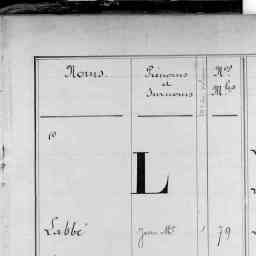 Noms. Prénoms et Surnoms Nos Mles
L
Labbé Jean Me 1 79